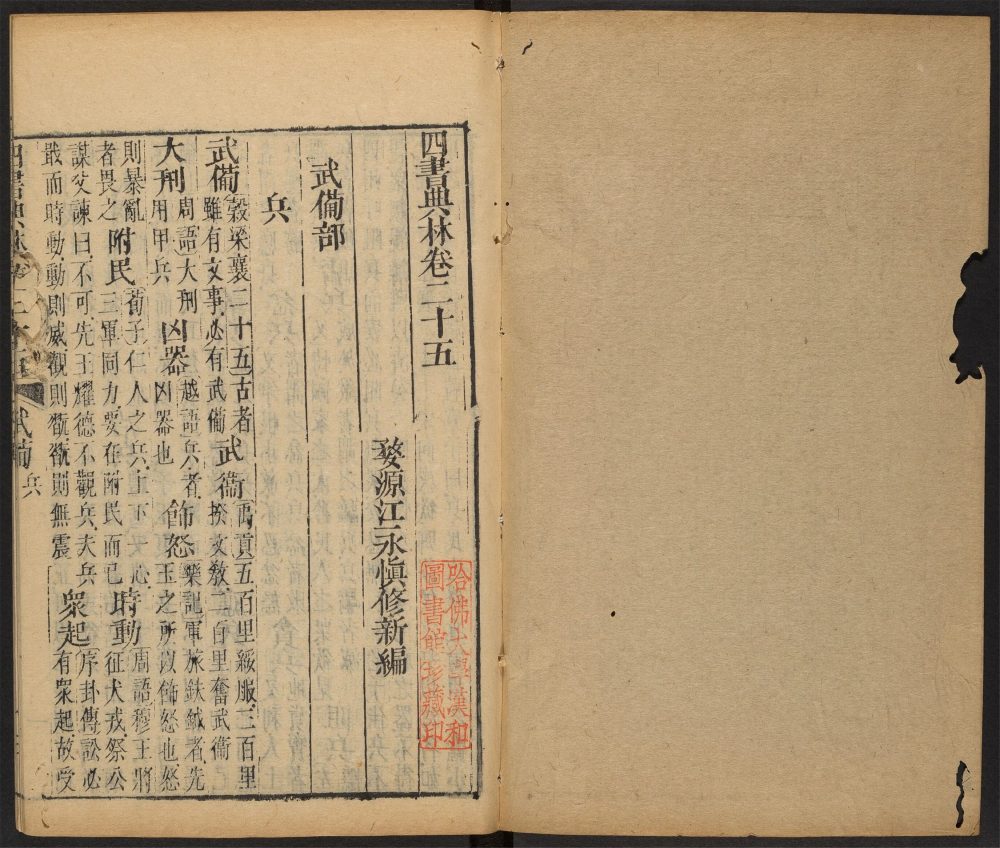 四書典林卷二十五
婺源江永慎修新編
哈佛大學漢和
圖書館珍藏印
武備部
兵
武備穀梁襄二十五古者雖有文事必有武備武衛禹貢五百里綏服三百里揆文教二百里奮武衛
大刑周語大刑用甲兵凶器越語兵者凶器也飾怒樂記軍旅鈇鉞者先王之所以飾怒也怒
則暴亂者畏之附民荀子仁人之兵上下一心三軍同力要在附民而已時動周語穆王將征犬戎祭公
謀父諫曰不可先王耀德不觀兵夫兵戢而時動動則威觀則翫翫則無震衆起序卦傳訟必有衆起故受
四書典林 武備 兵